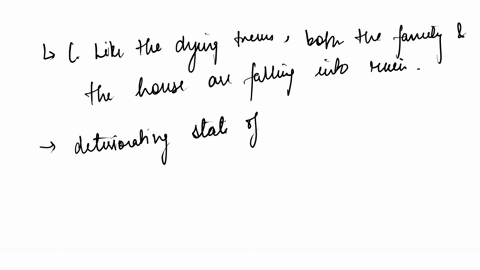 ↳ C. Like the dying trees, both the family &
the house are falling into ruin.
→ deteriorating state of